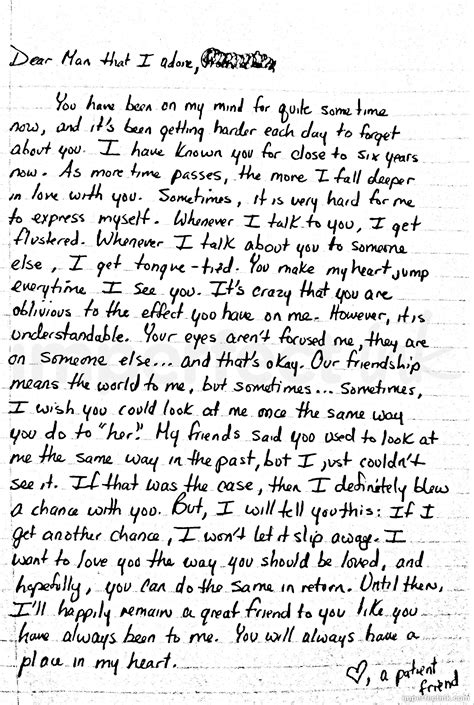 Dear Man that I adore,
You have been on my mind for quite sometime
now, and it's been getting harder each day to forget
about you. I have known you for close to six years
now. As more time passes, the more I fall deeper
in love with you. Sometimes, it is very hard for me
to express myself. Whenever I talk to you, I get
flustered. Whenever I talk about you to someone
else, I get tongue-tied. You make my heart jump
everytime I see you. It's crazy that you are
oblivious to the effect you have on me. However, it is
understandable. Your eyes aren't focused me, they are
on someone else... and that's okay. Our friendship
means the world to me, but sometimes... Sometimes,
I wish you could look at me once the same way
you do to "her." My friends said you used to look at
me the same way in the past, but I just couldn't
see it. If that was the case, then I definitely blew
a chance with you. But, I will tell you this: If I
get another chance, I won't let it slip away. I
want to love you the way you should be loved, and
hopefully, you can do the same in return. Until then,
I'll happily remain a great friend to you like you
have always been to me. You will always have a
place in my heart.
♡, a patient
friend